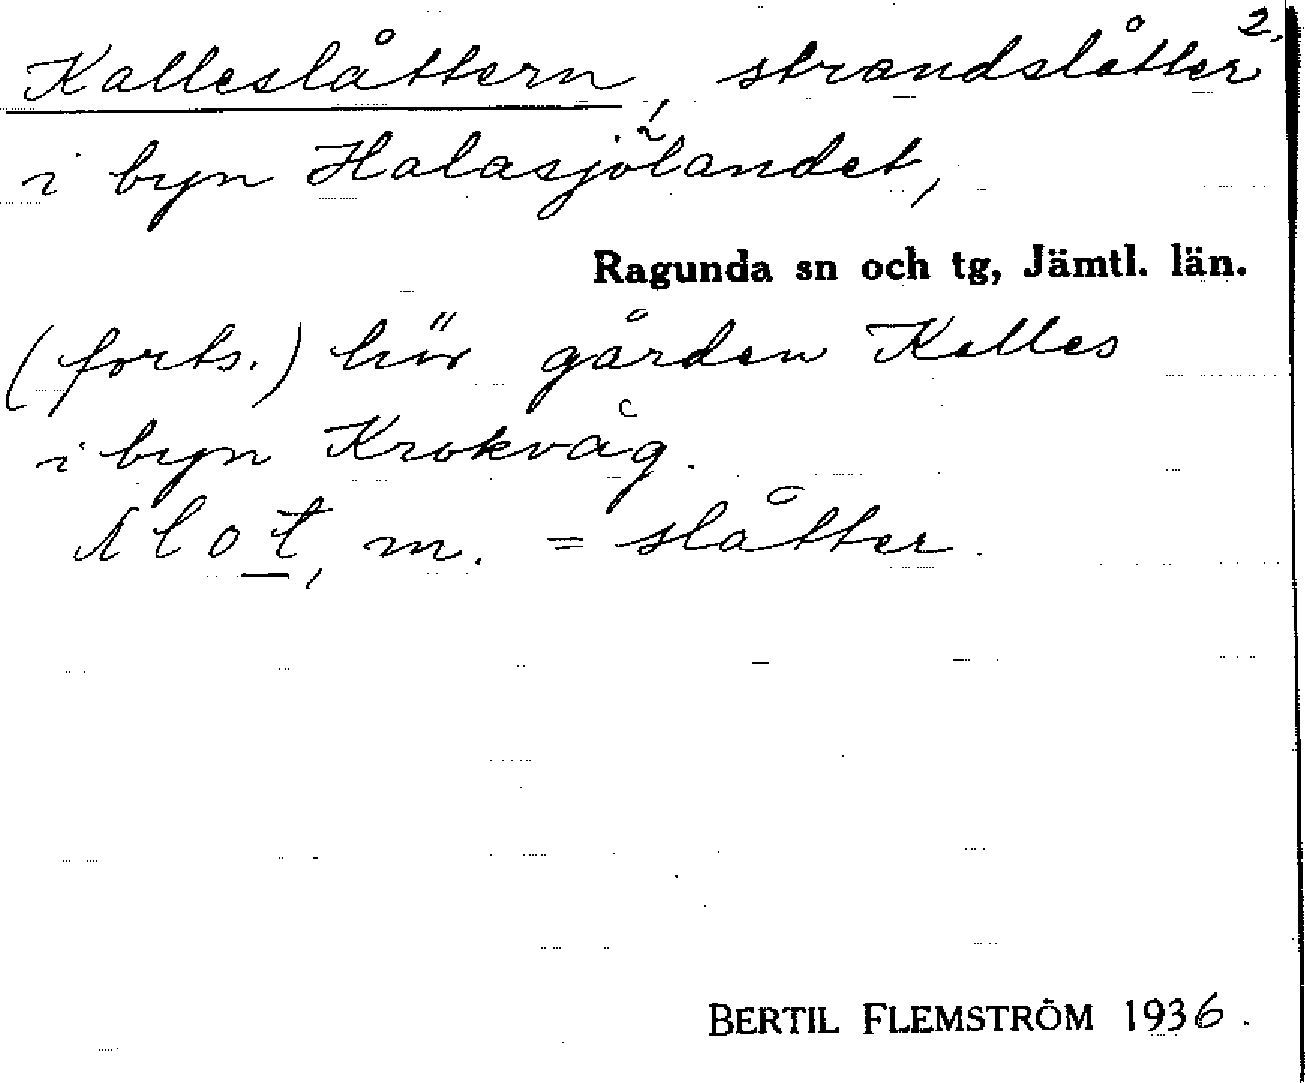 2.
Kalleslåttern, strandslåtter
i byn Halasjölandet,
Ragunda sn och tg, Jämtl. län.
(forts.) hör gården Kalles
i byn Krokvåg.
slot, m. = slåtter.
BERTIL FLEMSTRÖM 1936.